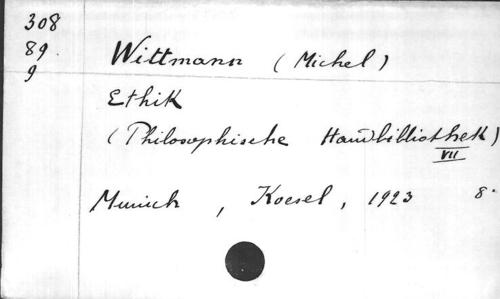 308
89
9
Wittmann (Michel)
Ethik
(Philosophische Handbibliothek)
VII
Munich, Koesel, 1923 8°